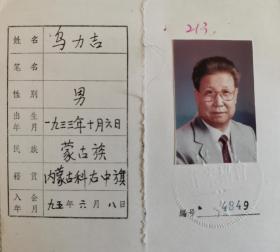 姓名 乌力吉
笔名
性别 男
出生年月 一九三三年十月六日
民族 蒙古族
籍贯 内蒙古科右中旗
入会年月 九五年六月八日
213
编号 4849